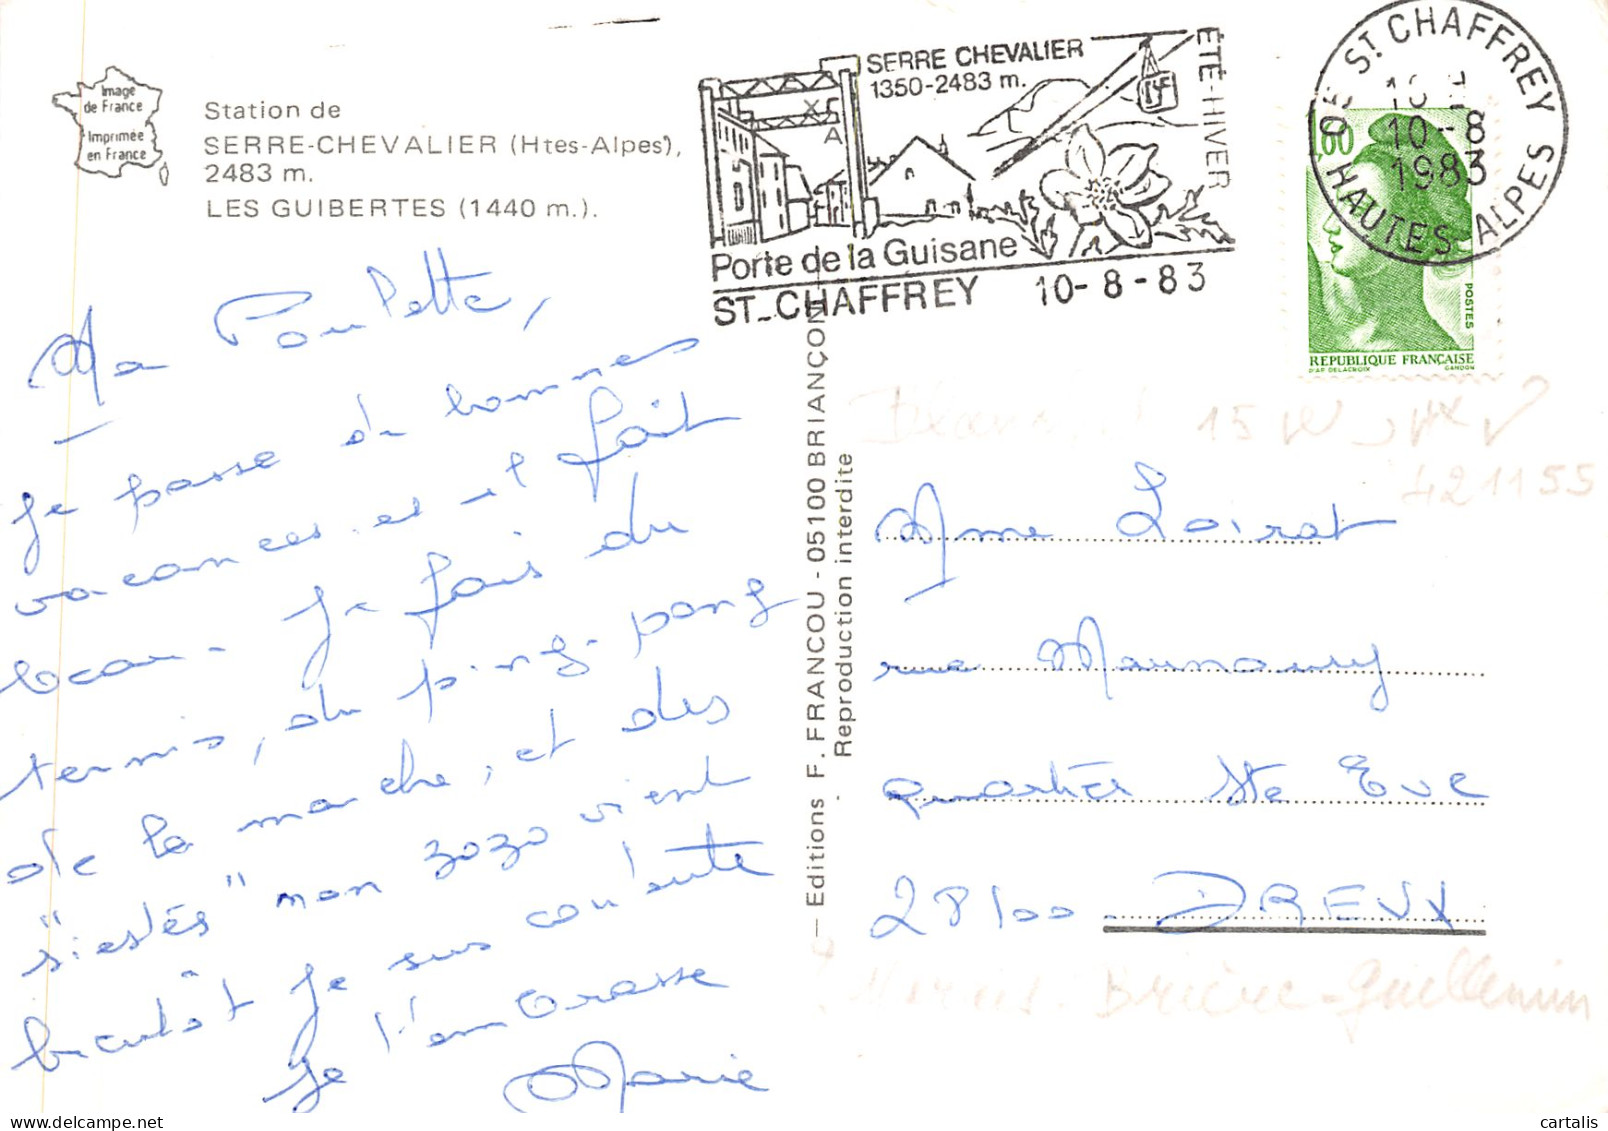 Image
de France
Imprimée
en France
Station de
SERRE-CHEVALIER (Htes-Alpes),
2483 m.
LES GUIBERTES (1440 m.).
SERRE CHEVALIER
1350-2483 m.
ÉTÉ-HIVER
Porte de la Guisane
ST-CHAFFREY 10-8-83
05 ST CHAFFREY
10-8
1983
HAUTES ALPES
1,80
POSTES
REPUBLIQUE FRANÇAISE
D'AP. DELACROIX GANDON
Ma Poulette,
Je passe de bonnes
vacances et il fait
beau. Je fais du
tennis, du ping-pong
de la marche, et des
"siestes" mon zozo vient
bientôt je suis contente
Je t'embrasse
Marie
— Editions F. FRANCOU - 05100 BRIANÇON
Reproduction interdite
15
421155
Mme Loirat
rue Maunoury
quartier Ste Eve
28100 DREUX
Brière-Guillemin
cartalis